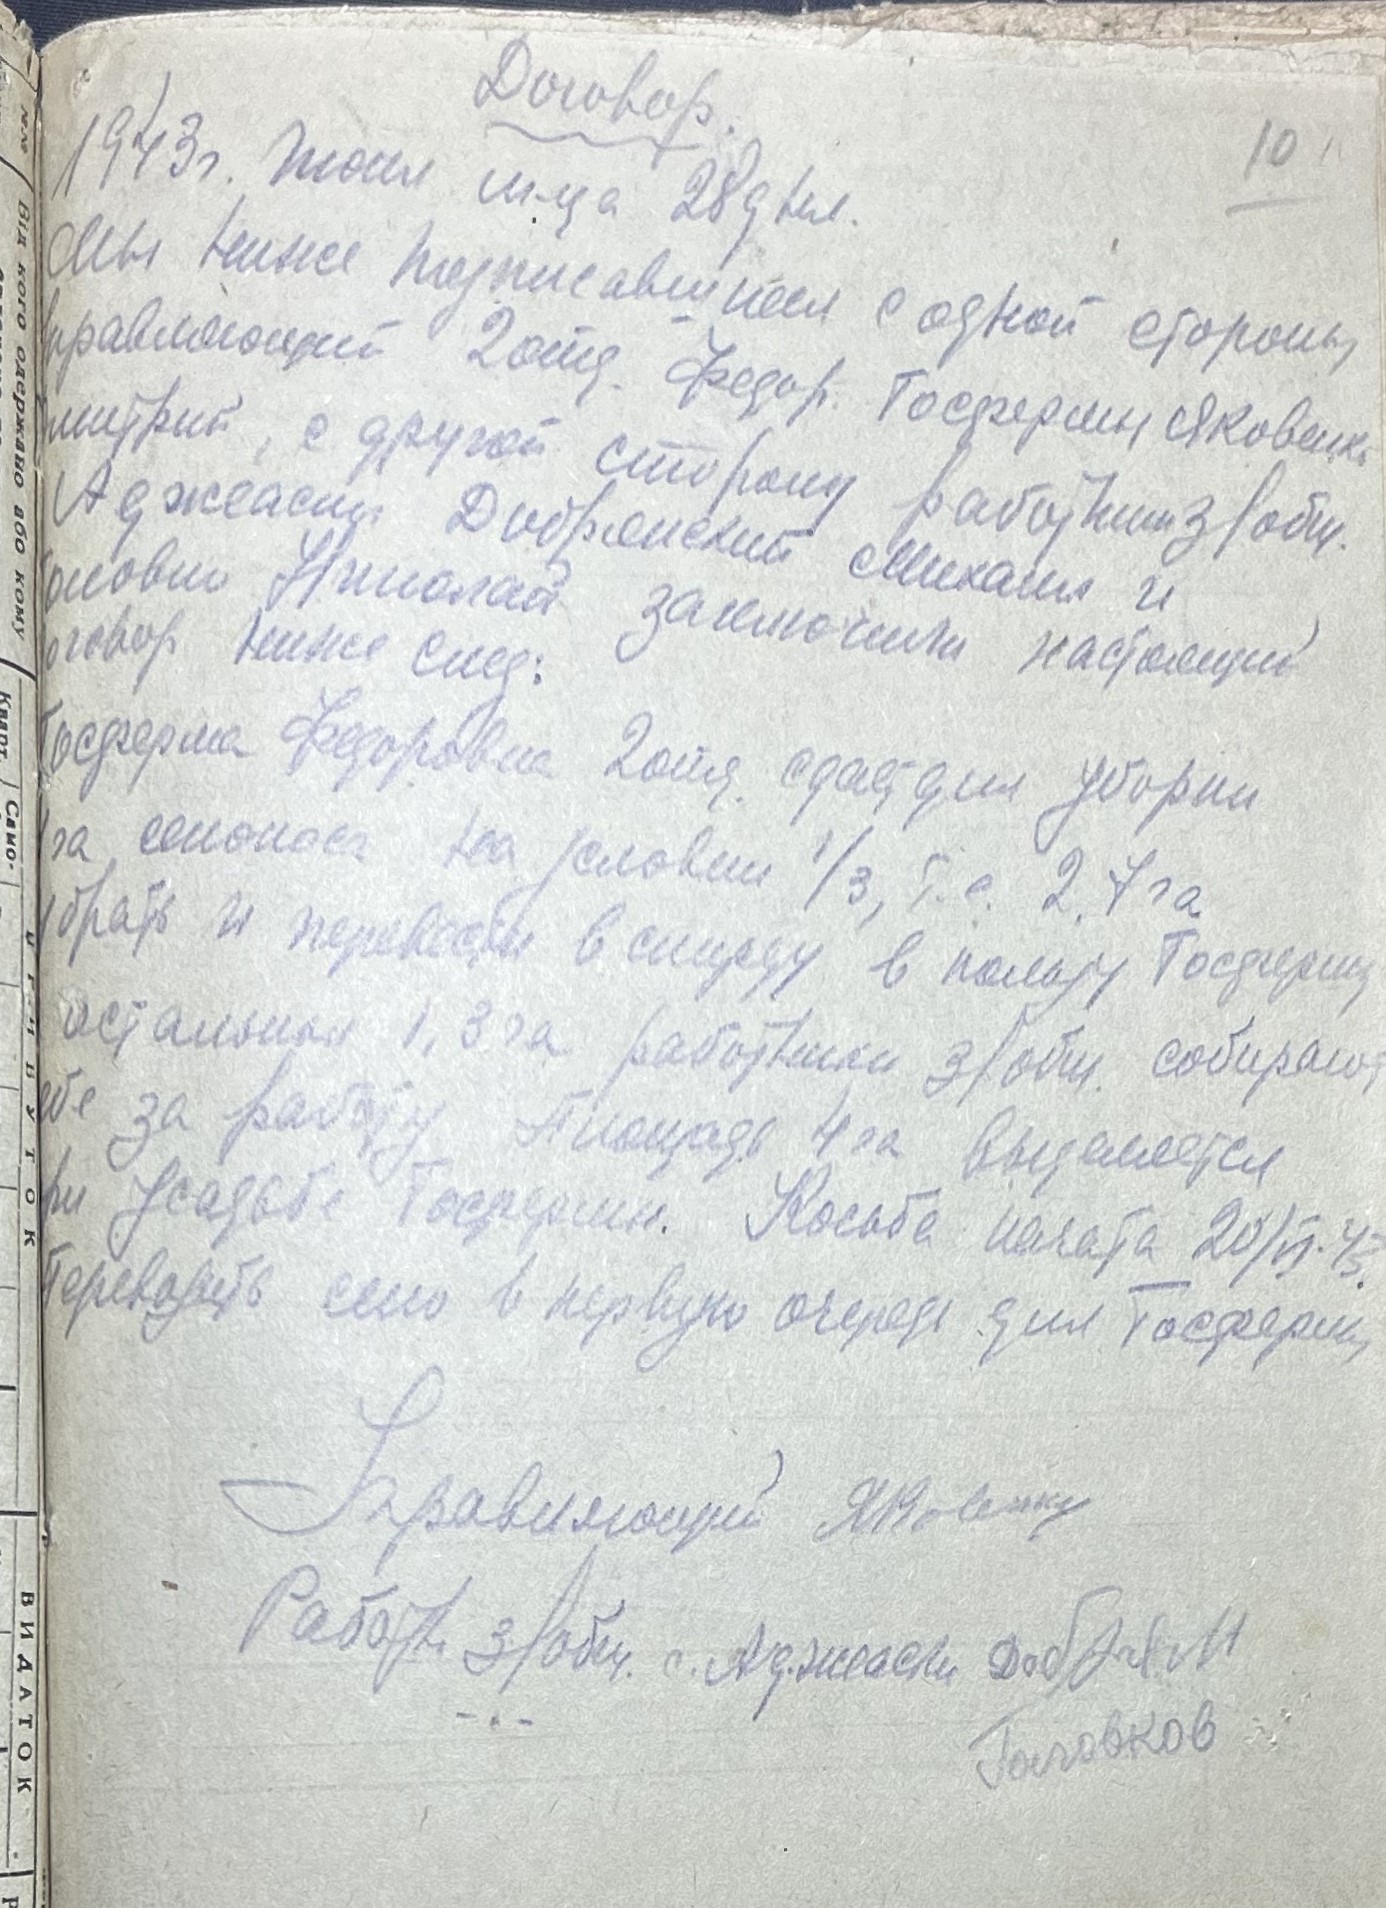 Договор.
10
1943 г. июня м-ца 28 дня.
Мы ниже подписавшиеся с одной стороны,
управляющий 2 отд. Федор. Госфермы Яковенко
митрий, с другой стороны работники з/общ.
Аджеаски Добрянский Михаил и
Николай заключили настоящий
оговор ниже след:
Госферма Федоровка 2 отд. сдает для уборки
га сенокоса на условии 1/3, т.е. 2,7 га
убрать и перевезти в скирду в пользу Госфермы
остальныя 1,3 га работники з/общ. собирают
ебе за работу Площадь 4 га выделяется
при усадьбе Госфермы. Косьба начата 20/VI-43
Перевозить сено в первую очередь для Госфермы
Управляющий Яковенко
Работн. з/общ. с. Аджеаски Добрян М
Головков
№№
Від кого одержано або кому
Кварт.
Само-
ВИДАТОК